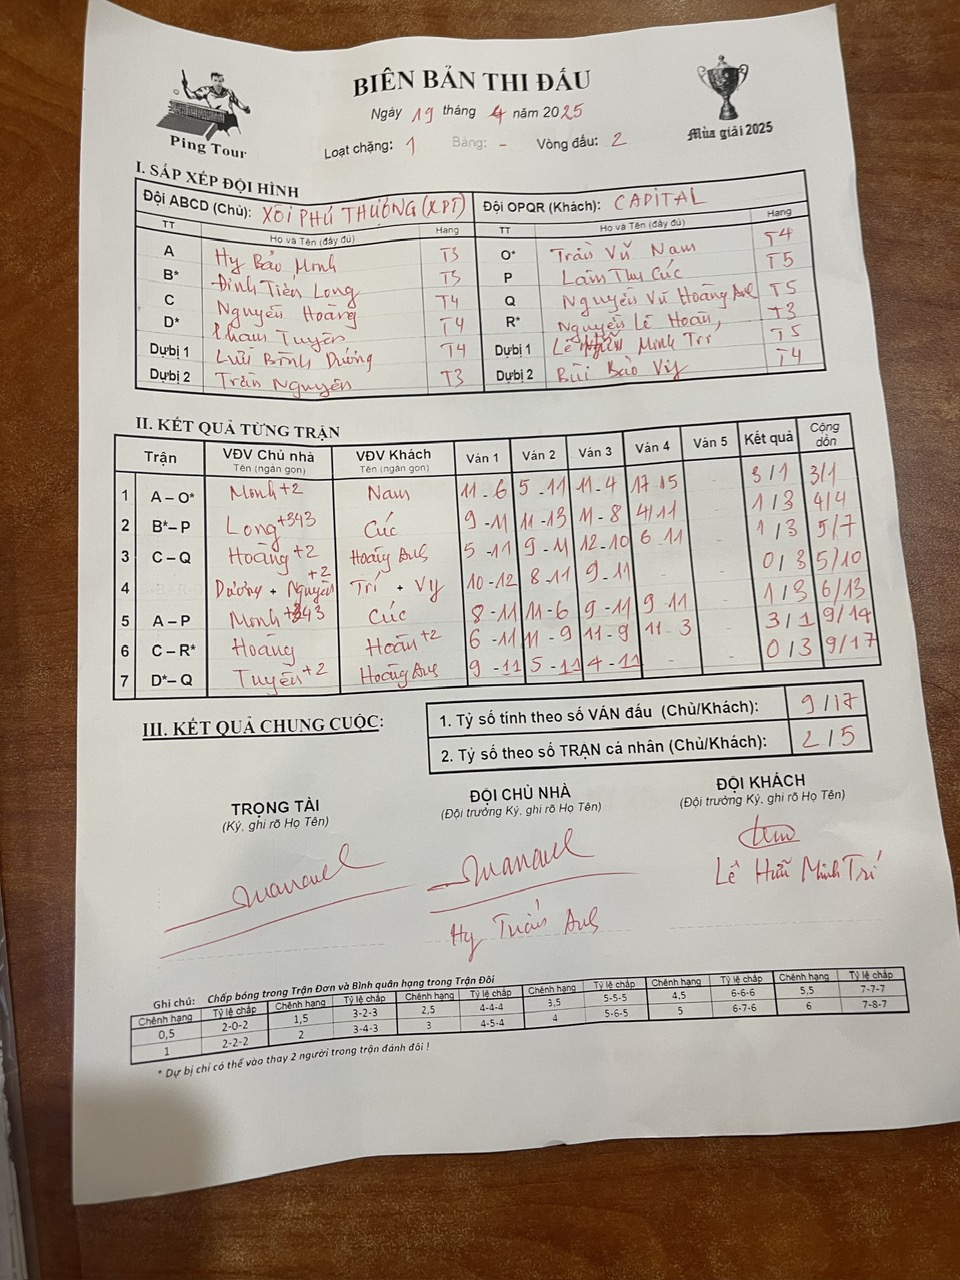 BIÊN BẢN THI ĐẤU
Ngày 19 tháng 4 năm 2025
Ping Tour
Mùa giải 2025
Loạt chặng: 1 Bảng: - Vòng đấu: 2
I. SẮP XẾP ĐỘI HÌNH
Đội ABCD (Chủ): XÔI PHÚ THƯỢNG (XPT) Đội OPQR (Khách): CAPITAL
TT Họ và Tên (đầy đủ) Hạng TT Họ và Tên (đầy đủ) Hạng
A Hy Bảo Minh T3 O* Trần Vũ Nam T4
B* Đinh Tiến Long T3 P Lâm Thu Cúc T5
C Nguyễn Hoàng T4 Q Nguyễn Vũ Hoàng Anh T5
D* Phạm Tuyên T4 R* Nguyễn Lê Hoàn T3
Dự bị 1 Lưu Bình Dương T4 Dự bị 1 Lê Minh Trí T5
Dự bị 2 Trần Nguyên T3 Dự bị 2 Bùi Bảo Vy T4
II. KẾT QUẢ TỪNG TRẬN
Trận VĐV Chủ nhà VĐV Khách Ván 1 Ván 2 Ván 3 Ván 4 Ván 5 Kết quả Cộng dồn
Tên (ngắn gọn) Tên (ngắn gọn)
1 A – O* Minh +2 Nam 11 - 6 5 - 11 11 - 4 17 - 15 3 / 1 3/1
2 B* – P Long +343 Cúc 9 - 11 11 - 13 11 - 8 4/11 - 1 / 3 4/4
3 C – Q Hoàng +2 Hoàng Anh 5 - 11 9 - 11 12 - 10 6 11 - 1 / 3 5/7
4 Dương + Nguyên +2 Trí + Vy 10 - 12 8 - 11 9 - 11 - - 0 / 3 5/10
5 A – P Minh +343 Cúc 8 - 11 11 - 6 9 - 11 9 - 11 - 1 / 3 6/13
6 C – R* Hoàng Hoàn +2 6 - 11 11 - 9 11 - 9 11 - 3 - 3 / 1 9/14
7 D* – Q Tuyên +2 Hoàng Anh 9 - 11 5 - 11 4 - 11 - - 0 / 3 9/17
III. KẾT QUẢ CHUNG CUỘC:
1. Tỷ số tính theo số VÁN đấu (Chủ/Khách): 9 / 17
2. Tỷ số theo số TRẬN cá nhân (Chủ/Khách): 2 / 5
TRỌNG TÀI ĐỘI CHỦ NHÀ ĐỘI KHÁCH
(Ký, ghi rõ Họ Tên) (Đội trưởng Ký, ghi rõ Họ Tên) (Đội trưởng Ký, ghi rõ Họ Tên)
Manauel Manauel
Hy Tuấn Anh Lê Hữu Minh Trí
Ghi chú: Chấp bóng trong Trận Đơn và Bình quân hạng trong Trận Đôi
Chênh hạng Tỷ lệ chấp Chênh hạng Tỷ lệ chấp Chênh hạng Tỷ lệ chấp Chênh hạng Tỷ lệ chấp Chênh hạng Tỷ lệ chấp Chênh hạng Tỷ lệ chấp
0,5 2-0-2 1,5 3-2-3 2,5 4-4-4 3,5 5-5-5 4,5 6-6-6 5,5 7-7-7
1 2-2-2 2 3-4-3 3 4-5-4 4 5-6-5 5 6-7-6 6 7-8-7
* Dự bị chỉ có thể vào thay 2 người trong trận đánh đôi !